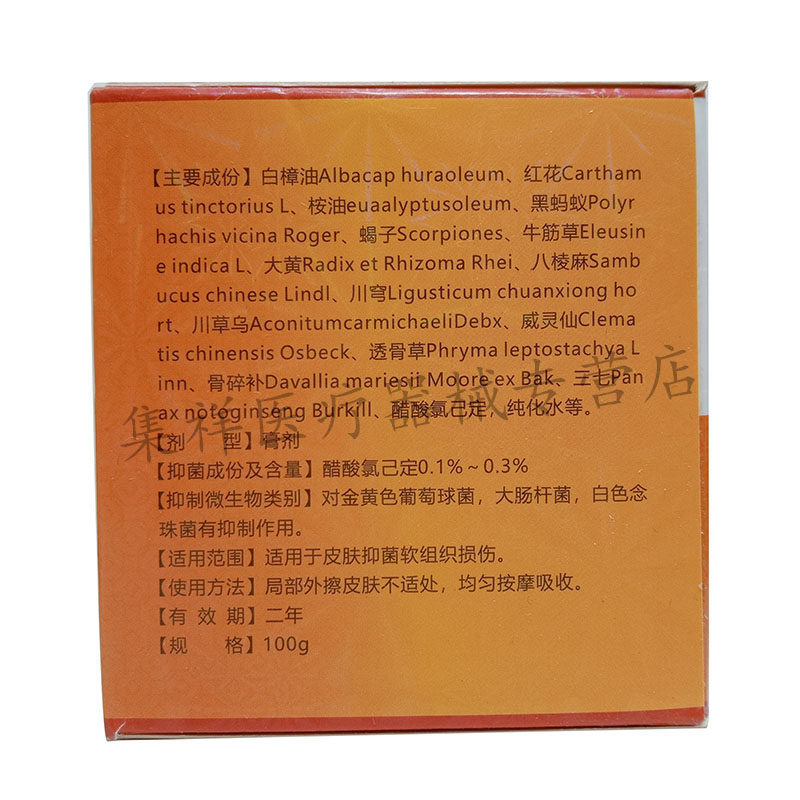 【主要成份】白樟油Albacap huraoleum、红花Cartham
us tinctorius L、桉油euaalyptusoleum、黑蚂蚁Polyr
hachis vicina Roger、蝎子Scorpiones、牛筋草Eleusin
e indica L、大黄Radix et Rhizoma Rhei、八棱麻Samb
ucus chinese Lindl、川穹Ligusticum chuanxiong ho
rt、川草乌AconitumcarmichaeliDebx、威灵仙Clema
tis chinensis Osbeck、透骨草Phryma leptostachya L
inn、骨碎补Davallia mariesii Moore ex Bak、三毛Pan
ax notoginseng Burkill、醋酸氯己定，纯化水等。
集祥医疗器械专营店
【剂 型】膏剂
【抑菌成份及含量】醋酸氯己定0.1%~0.3%
【抑制微生物类别】对金黄色葡萄球菌，大肠杆菌，白色念
珠菌有抑制作用。
【适用范围】适用于皮肤抑菌软组织损伤。
【使用方法】局部外擦皮肤不适处，均匀按摩吸收。
【有 效 期】二年
【规 格】100g